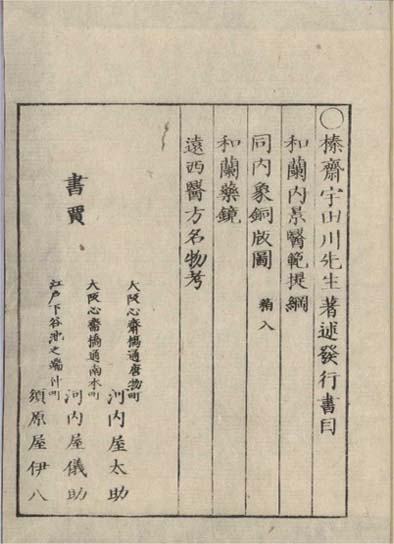 〇榛齋宇田川先生著述發行書目
和蘭內景醫範提綱
同內象銅版圖 箱入
和蘭藥鏡
遠西醫方名物考
書賈
大阪心齋橋通唐物町 河內屋太助
大阪心齋橋通南本町 河內屋儀助
江戶下谷池之端仲町 須原屋伊八